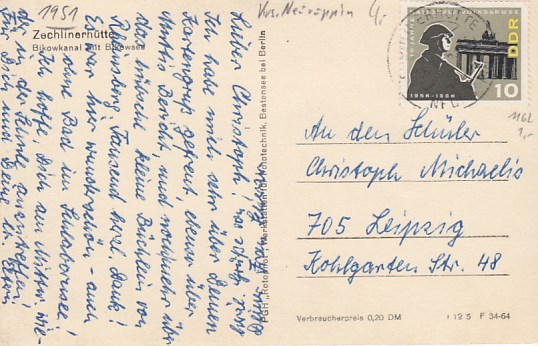 1951
Krs. Neuruppin
Zechlinerhütte
Bikowkanal mit Bikowsee
Lieber Christoph!
Ich habe mich sehr über Deinen
Kartengruß gefreut, ebenso über
Muttis Bericht und nochmehr über
das hübsche kleine Büchlein von
Rheinsberg. Tausend herzl. Dank!
Es war hier wunderschön - auch
ohne Bad im Schlabornsee!
Ich hoffe, Dich am Mittwoch
in der Schule anzutreffen!
Für Dich und Deine lb. Eltern
PGH "Rotophot", Bestensee bei Berlin
ZECHLINERHÜTTE
DDR
1956-1966
10
1162
1,-
An den Schüler
Christoph Michaelis
705 Leipzig
Kohlgarten Str. 48
Verbraucherpreis 0,20 DM
I 12 5 F 34-64